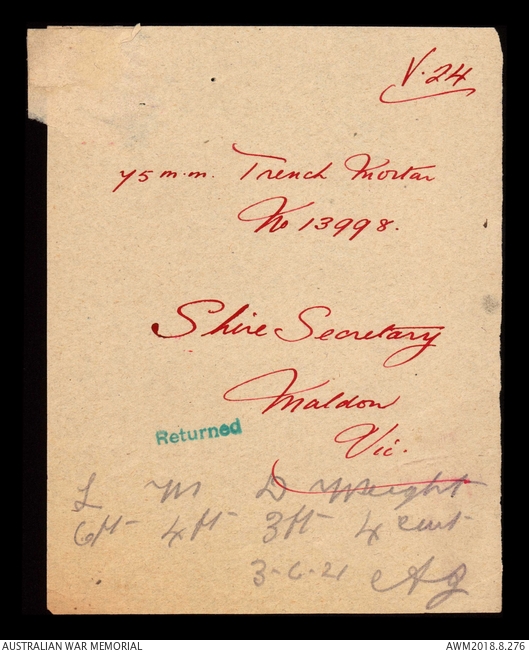 V.24
75 m.m. Trench Mortar
No 13998.
Shire Secretary
Maldon
Vic.
Returned
L M D Weight
6ft 4ft 3ft 4 cwt
3-6-21 AJ
AUSTRALIAN WAR MEMORIAL
AWM2018.8.276